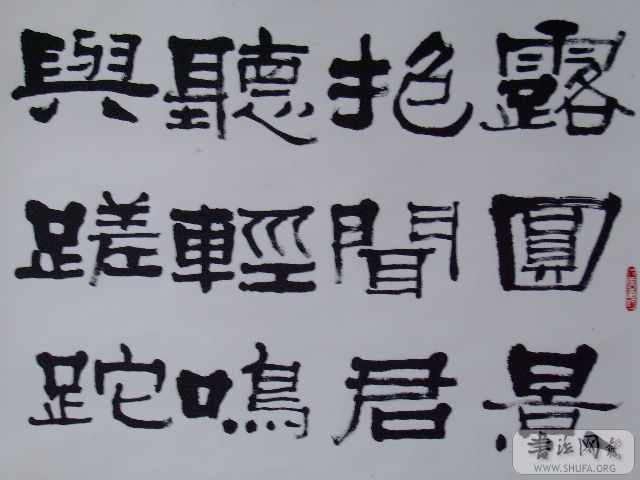 露圓景
抱聞君
聽輕鳴
與蹉跎
書法网
WWW.SHUFA.ORG